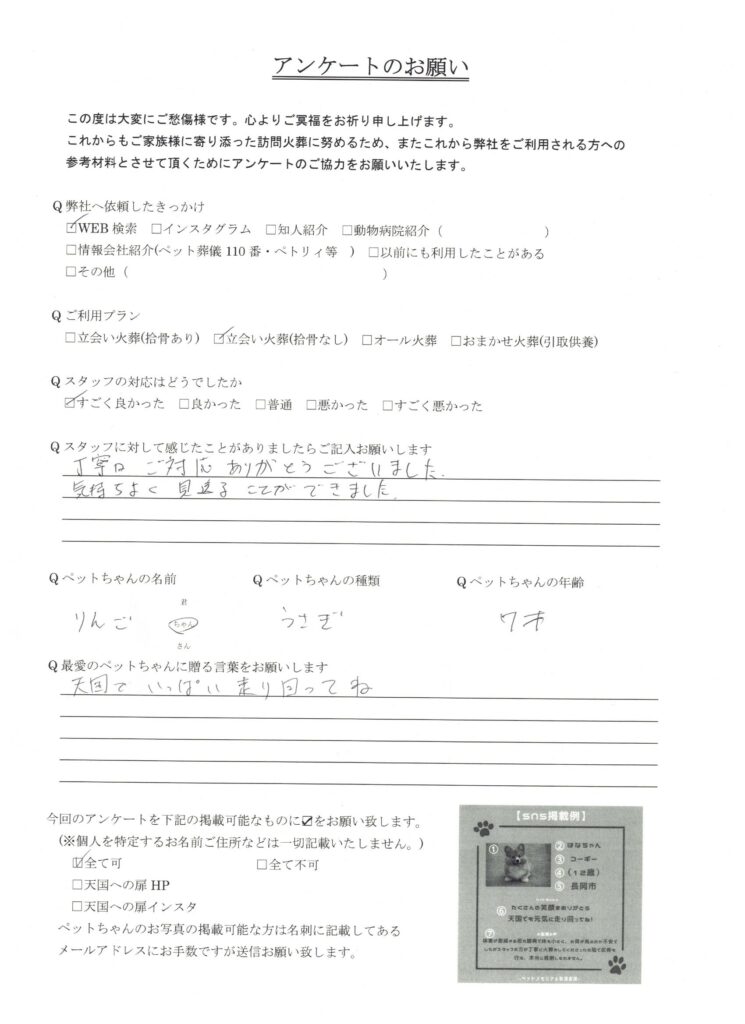 アンケートのお願い
この度は大変にご愁傷様です。心よりご冥福をお祈り申し上げます。
これからもご家族様に寄り添った訪問火葬に努めるため、またこれから弊社をご利用される方への
参考材料とさせて頂くためにアンケートのご協力をお願いいたします。
Q 弊社へ依頼したきっかけ
☑WEB 検索 □インスタグラム □知人紹介 □動物病院紹介（ ）
□情報会社紹介(ペット葬儀 110 番・ペトリィ等 ) □以前にも利用したことがある
□その他（ ）
Q ご利用プラン
□立会い火葬(拾骨あり) ☑立会い火葬(拾骨なし) □オール火葬 □おまかせ火葬(引取供養)
Q スタッフの対応はどうでしたか
☑すごく良かった □良かった □普通 □悪かった □すごく悪かった
Q スタッフに対して感じたことがありましたらご記入お願いします
丁寧な ご対応 ありがとうございました.
気持ちよく 見送る ことができました.
Q ペットちゃんの名前 Q ペットちゃんの種類 Q ペットちゃんの年齢
君
りんご ちゃん うさぎ 7才
さん
Q 最愛のペットちゃんに贈る言葉をお願いします
天国で いっぱい 走り回ってね
今回のアンケートを下記の掲載可能なものに☑をお願い致します。
(※個人を特定するお名前ご住所などは一切記載いたしません。)
☑全て可 □全て不可
□天国への扉 HP
□天国への扉インスタ
ペットちゃんのお写真の掲載可能な方は名刺に記載してある
メールアドレスにお手数ですが送信お願い致します。
【sns掲載例】
① ② はなちゃん
③ コーギー
④ （12歳）
⑤ 長岡市
たくさんの笑顔をありがとう
⑥ 天国でも元気に走り回ってね！
⑦